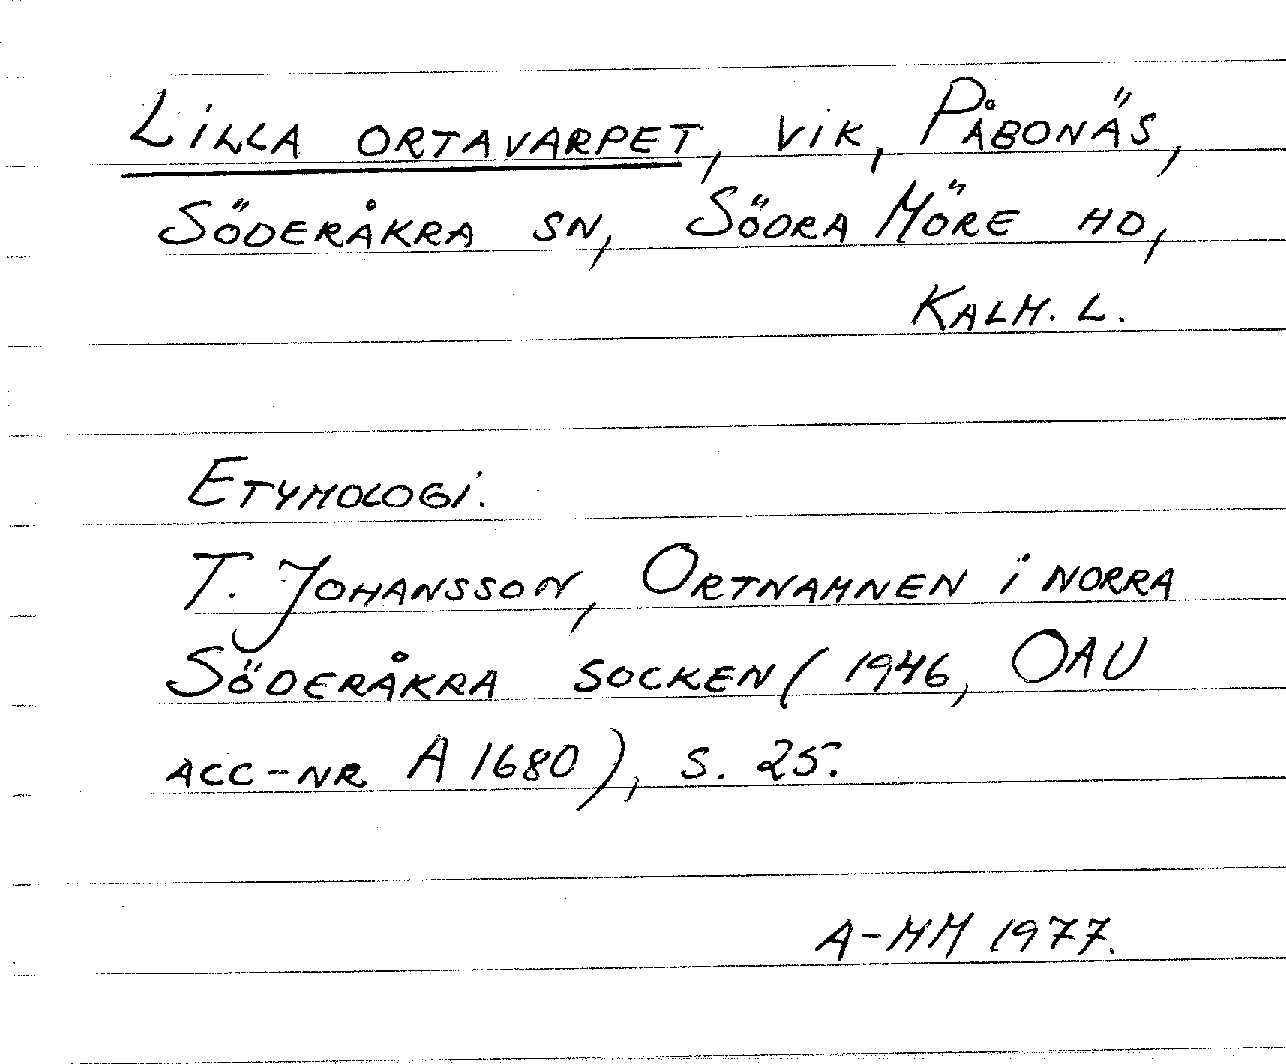 LILLA ORTAVARPET, VIK, PÅBONÄS,
SÖDERÅKRA SN, SÖDRA MÖRE HD,
KALM. L.
ETYMOLOGI.
T. JOHANSSON, ORTNAMNEN I NORRA
SÖDERÅKRA SOCKEN (1946, OAU
ACC-NR A 1680), S. 25.
A-MM 1977.